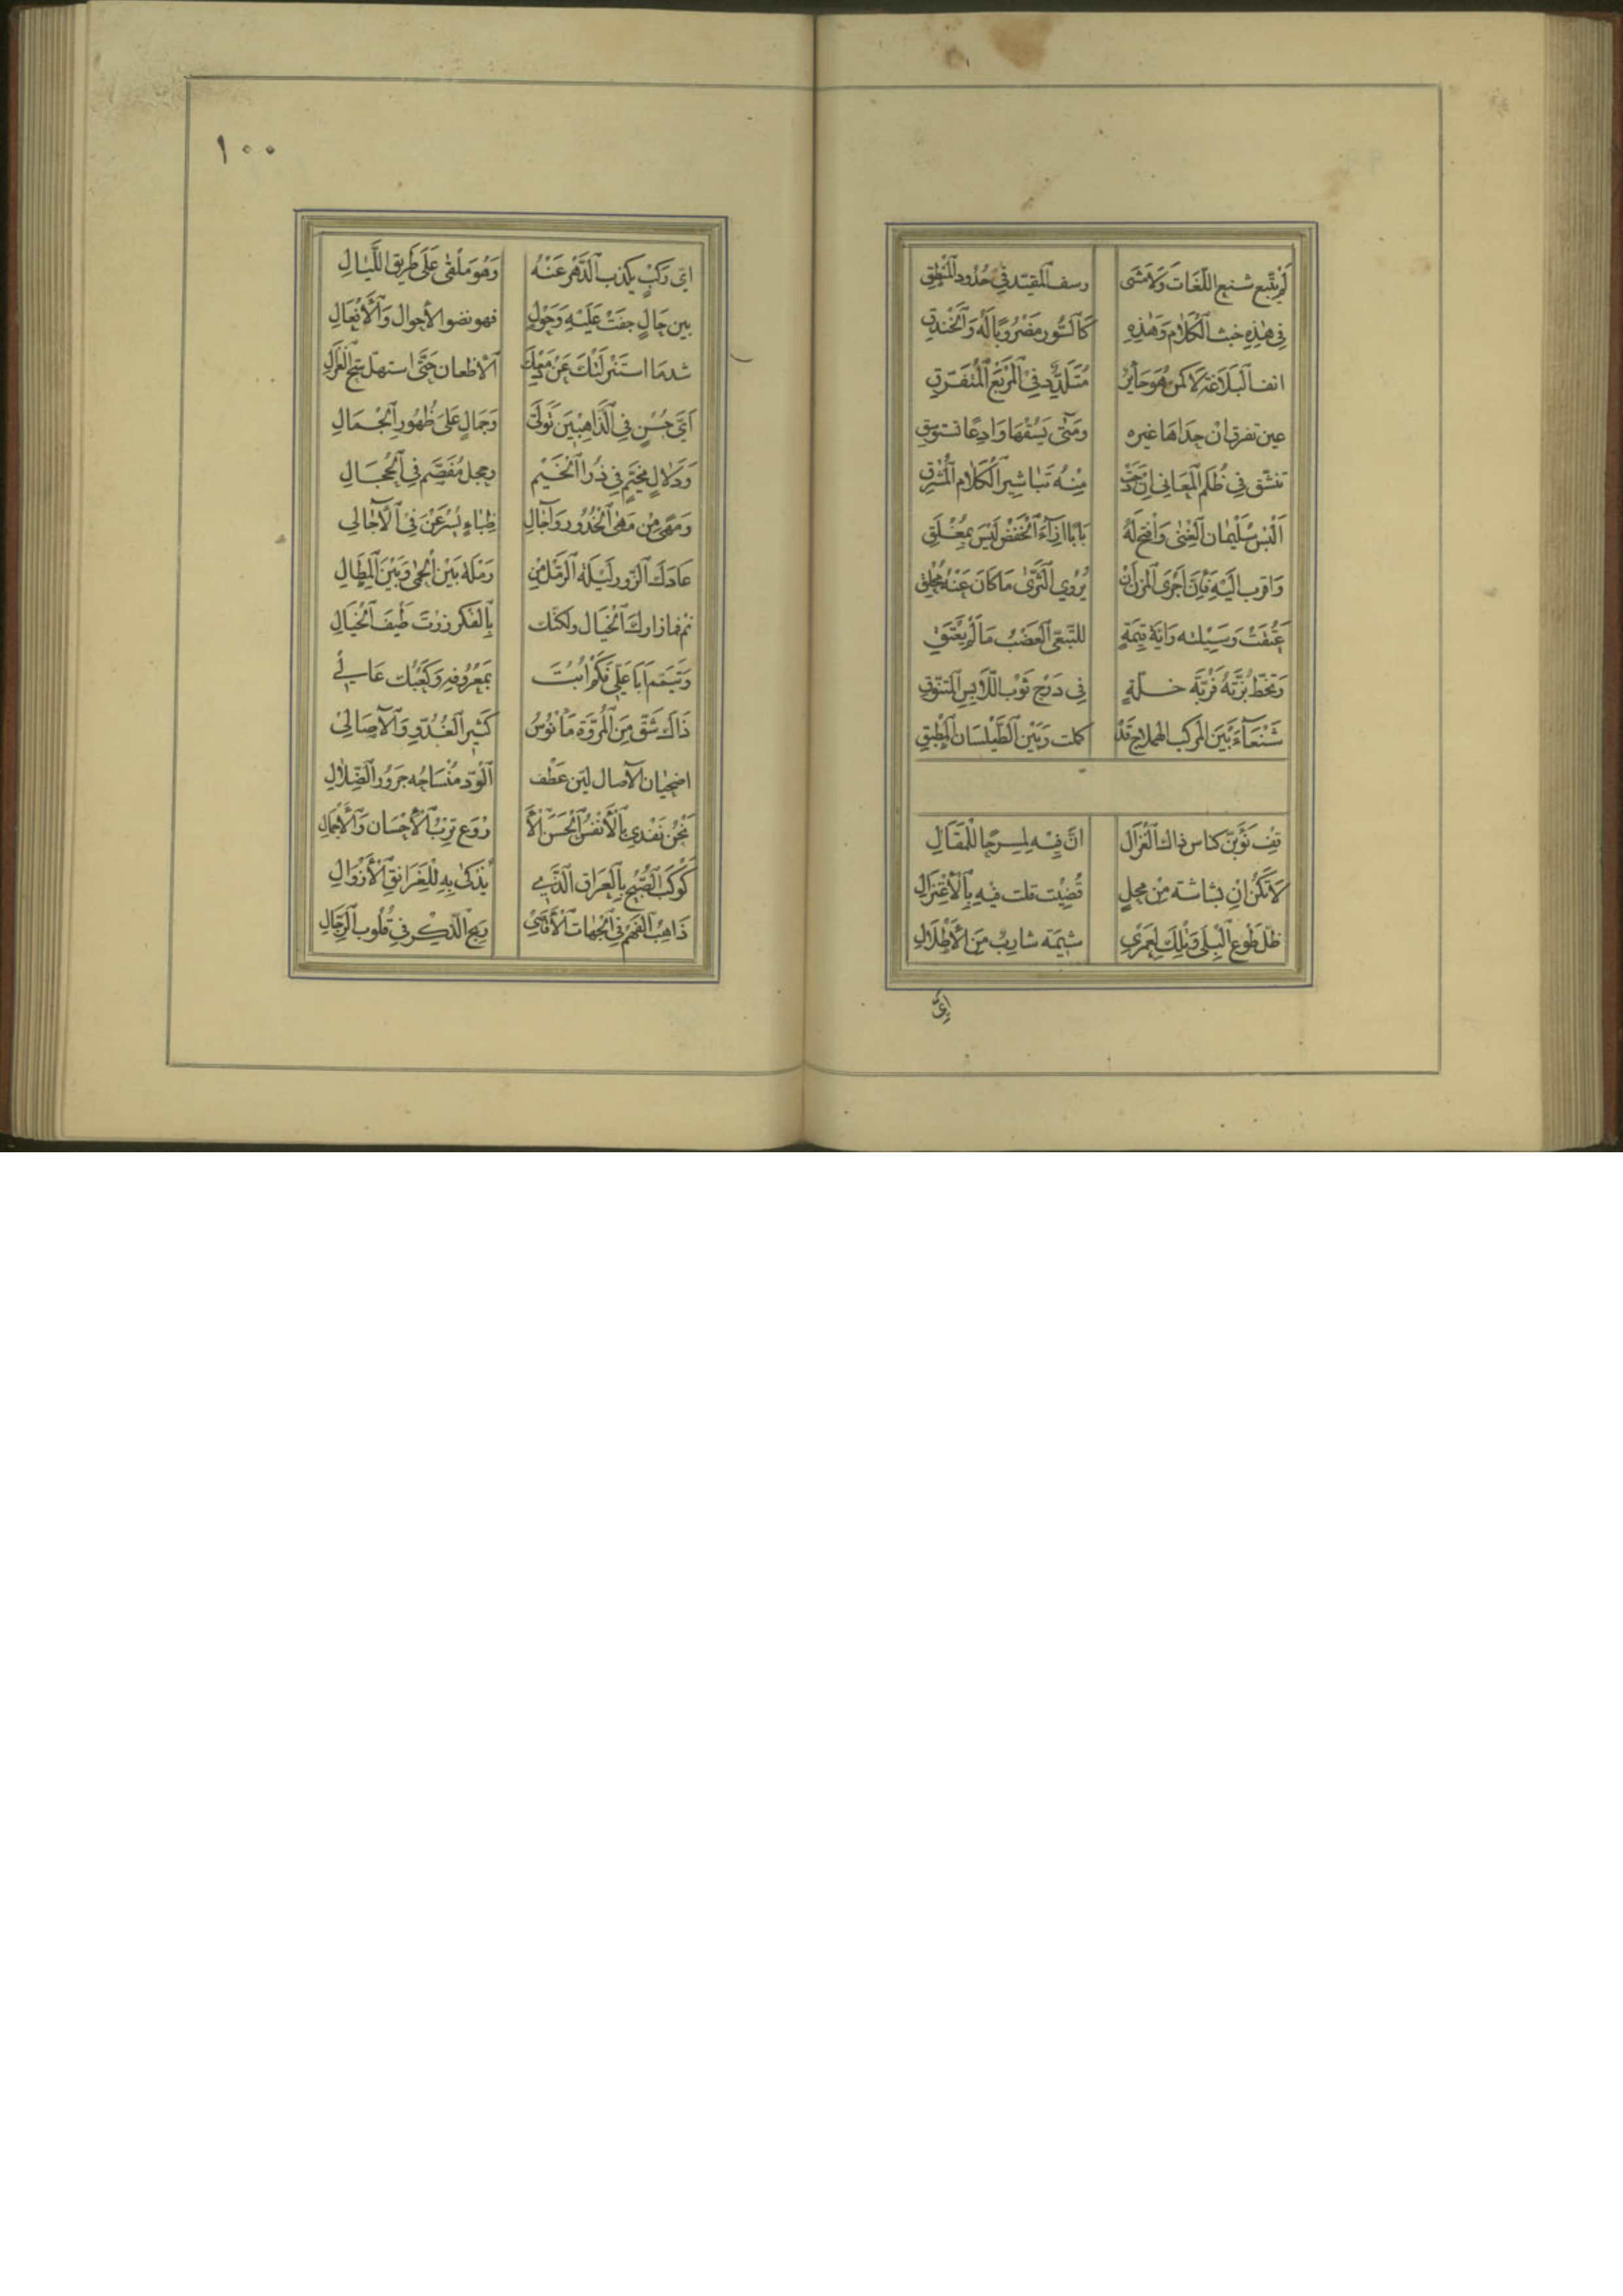 لَمْ يَتَّبِع شنيع اللُّغَات وَلَا مَشَى رسف المقيّد في حُدُود المنْطِقِ
فِي هٰذِهِ خبث الكَلَام وَهٰذِهِ كَالسُّور مَضْرُوبًا لَهُ وَالخَنْدَقِ
انف البَلَاغَة لَا كمن هُوَ حَايِرٌ مُتَلَدِّد فِي المَرْبَع المُتَفَرِّقِ
عين تفرق انْ حداها غيره وَمَتَى يَسُقْهَا وَادِعًا تستوسقِ
تنشق فِي ظُلَم المَعَانِي اِن دَجَتْ مِنْهُ تَبَاشِير الكَلَام المُشْرِقِ
اَلْبِسْ سُلَيْمَان الغِنَى وَافْتح لَهُ بَابًا اِزَاءَ الخَفْضِ لَيْسَ بِمُغْلَقِ
وَاقرب اليَّهِ فَاِنَّ اَجْرَى المزن انْ يُرْوِي الثَّرَى مَا كَانَ عَنْهُ مُحْلِقِ
عَتُقَتْ وَسِيلته وَايَّة قِيمَةٍ للتّبّعيّ العَضْب مَا لَمْ يُعْتَقِ
وَتخطّ بزّتَهُ فَرُبَّه خلّةٍ فِي دَرْجِ ثَوْب اللَّابِسِ المُتَنوّقِ
شَنْعَاءَ بَيْنَ المَركب الهملاج قَدْ كملت وَبَيْن الطَّيْلَسَان المُطبقِ
قِف نُؤَبِّنْ كناس ذاك الغَزَال انَّ فِيْهِ لمسرحا للمَقَالِ
لَا تكُنْ اِن بشاشة مِنْ محلٍ قُضِيَت قلت فيه بِالاعْتِزَالِ
ظلّ طَوع البِلَى وَتِلْكَ لعَمْرِي شيمة شاربٌ مِنَ الأَطْلَالِ
ايّ
١٠٠
ايّ رَكْبٍ يكذب الدَّهْر عَنْهُ وَهُوَ مَلْقى عَلَى طَرِيق اللَّيَالِ
بين حَالٍ جفَتْ عَلَيْهِ وَحَوْلٍ فهو نضو الأحوال وَالأَفْعَالِ
شدمَا استَنْزَلَتْكَ عَنْ دَمْعِكَ الأظعان حَتَّى استهلّ سَحَّ الغزَالِ
اَيّ حُسْنٍ فِي الذَّاهِبِينَ تَوَلَّى وَجَمَالٍ عَلَى ظُهُورِ الجمَالِ
وَدَلَالٍ مخيّمٍ فِي ذُرا الخَيْم وحجل مُفَصَّم فِي الحِجَالِ
وَمَهًى مِنْ مَهَى الخُدُور وَآجَالِ ظِبَاءٍ يُسْرَعْنَ فِي الآجَالِ
عَادَكَ الزّور لَيْلَة الرّمْل مِن رَمْلَة بَيْن الحِمَى وَبَيْنَ المِطَالِ
نم فَمَا زارك الخَيَال ولكنّك بِالفكر زرْتَ طَيْفَ الخَيَالِ
وَتَيَمَّم اَبَا عَلِيّ فكمْ ابُتَ بمَعْرُوفِهِ وَكَعْبُك عَالي
ذَاك شَقّ مِنَ المُرُوّة مَأْنُوسُ كَثِير الغُدُوّ وَالآصَالِ
اضحيان الآصال ليّن عَطْف الوُدّ مُنْسَاحُه جَرُور الضِّلَالِ
نَحْنُ نَفْدي بِالأَنْفُس الحَسَن الأَرْوَع ترْبُ الأَحْسَان وَالأجمَالِ
كَوْكَب الصُّبْح بِالعِرَاق الَّذي يُذَكى بِهِ لِلْغَرَانِقِ الأَزْوَالِ
ذَاهِبُ الفَهْم في الجهَات الأَقَاصِي وَبِح الذّكر في قُلُوب الرّجَالِ